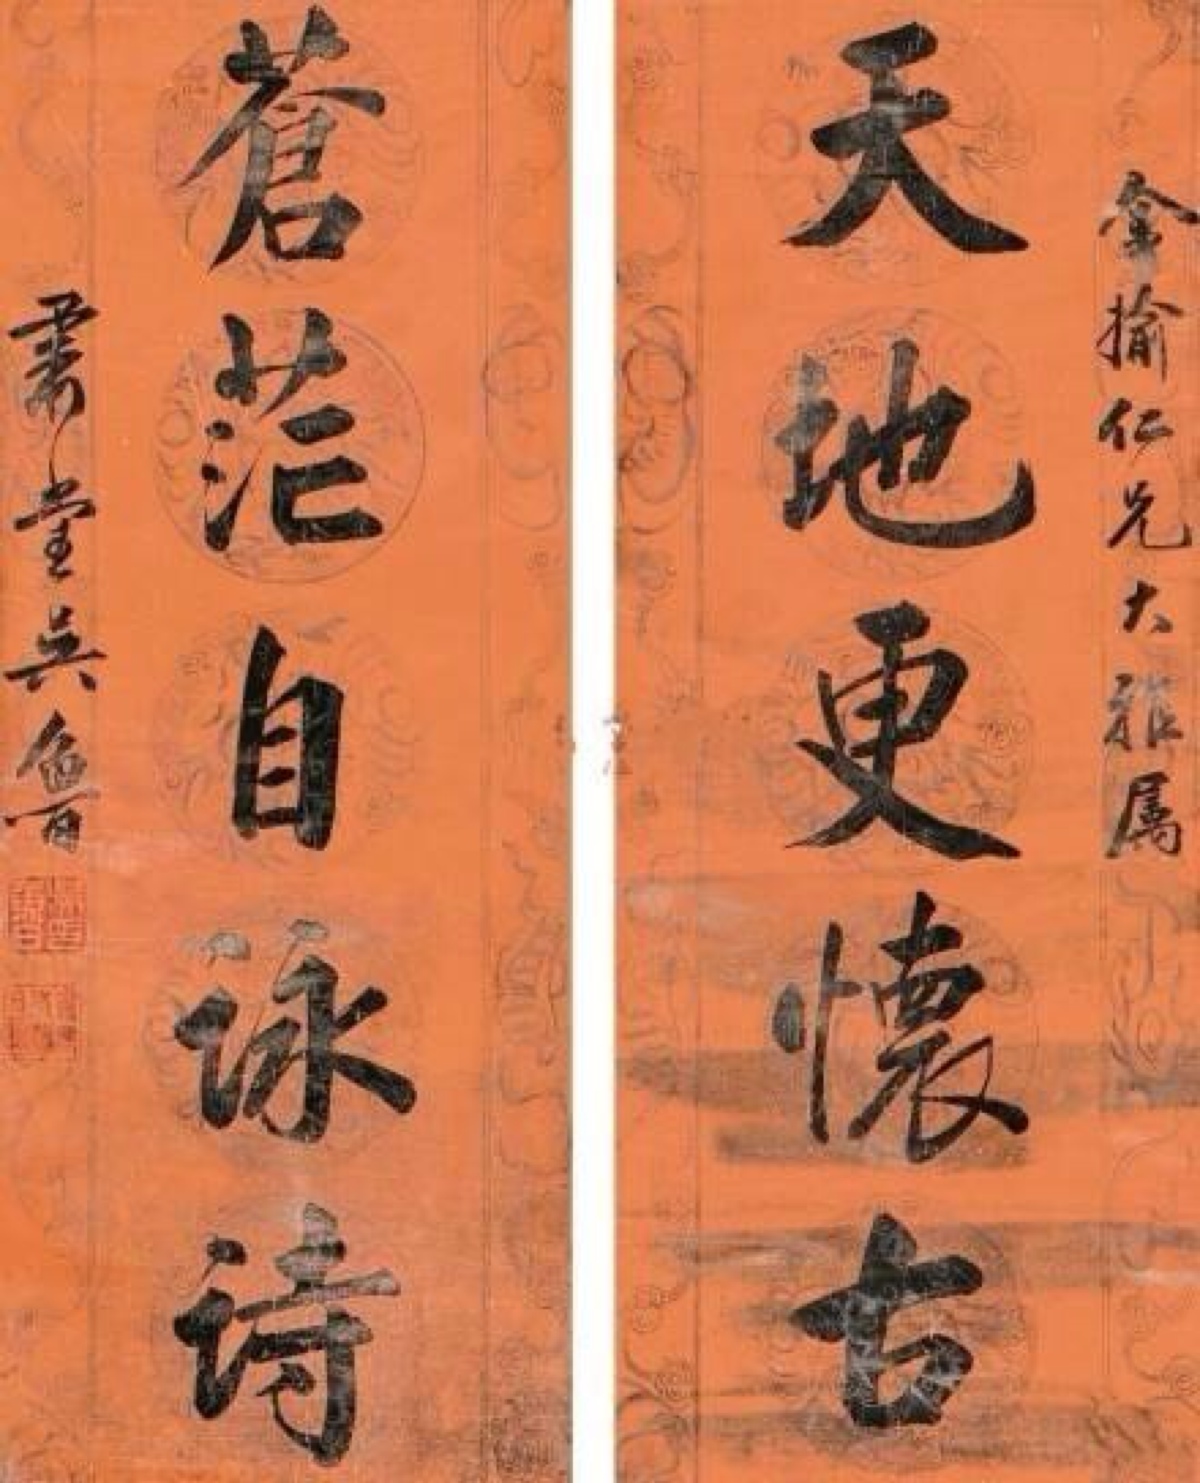 金揄仁兄大雅属
天地更懷古
蒼茫自詠詩
肅堂吳魯